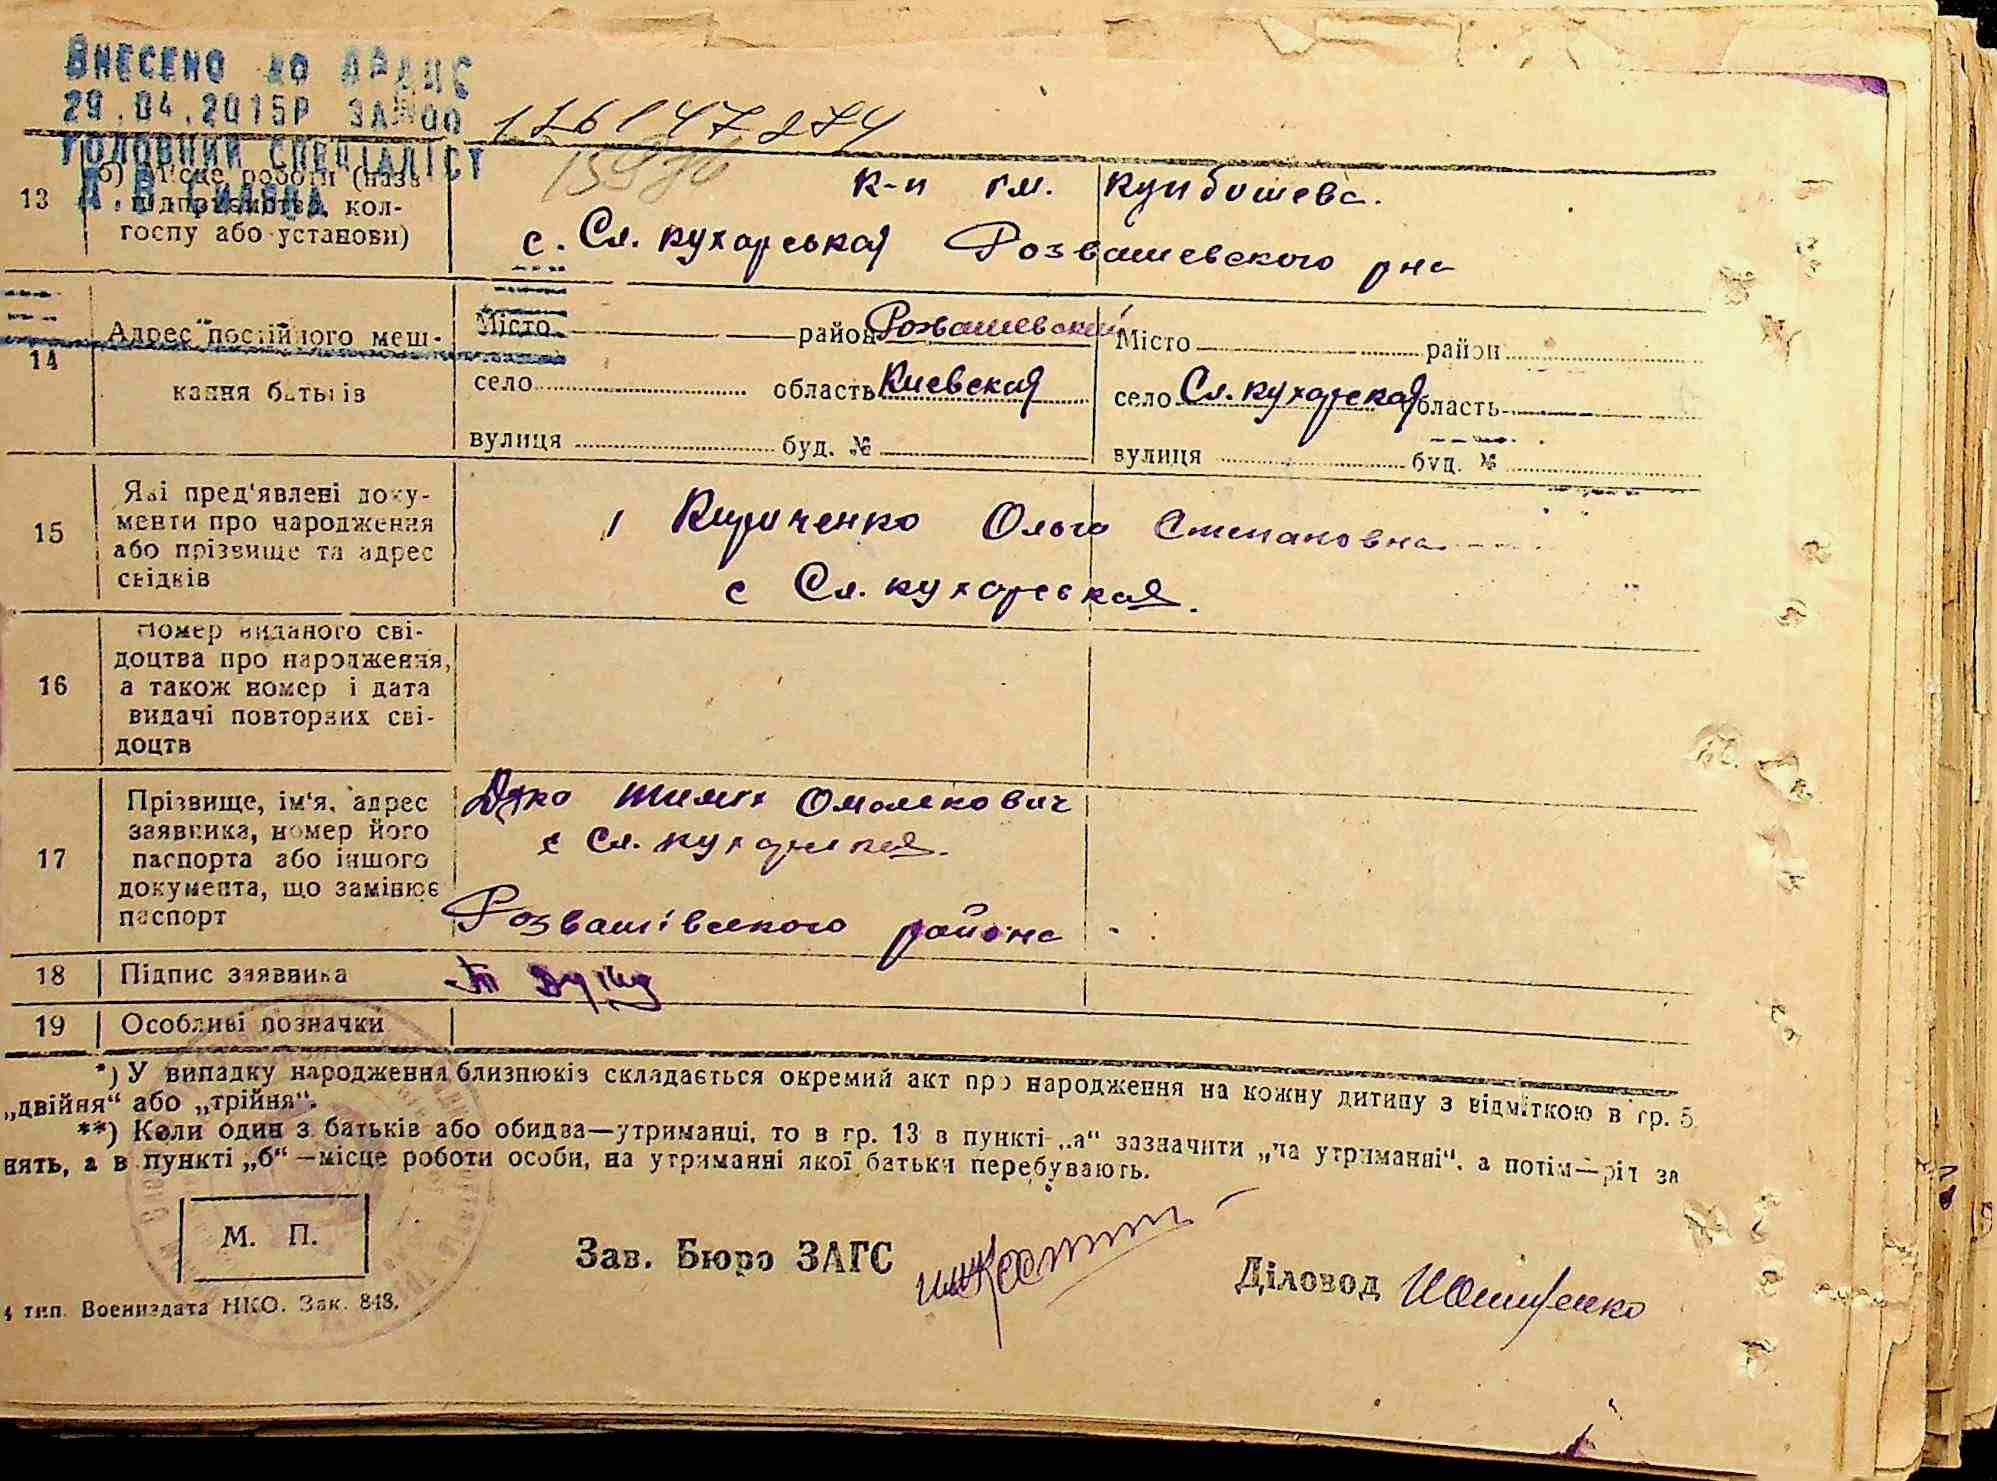 ВНЕСЕНО ДО ДРАЦС
29.04.2015Р
ГОЛОВНИЙ СПЕЦІАЛІСТ
13
б) місце роботи (назва
підприємства, кол-
госпу або установи)
к-п им. Куйбышева.
с. Сл. Кухарська
14
Адрес постійного меш-
кання батьків
Місто район Розважевский
село область Киевская
вулиця буд. №
Місто район
село Сл. кухарская область
вулиця буд. №
15
Які пред'явлені доку-
менти про народження
або прізвище та адрес
свідків
1 Кириченко Ольга Степановна
с Сл. кухарськая.
16
Номер виданого сві-
доцтва про народження,
а також номер і дата
видачі повторних сві-
доцтв
17
Прізвище, ім'я, адрес
заявника, номер його
паспорта або іншого
документа, що замінює
паспорт
с Сл. кухарская.
района
18
Підпис заявника
19
Особливі позначки
*) У випадку народження близнюків складається окремий акт про народження на кожну дитину з відміткою в гр. 5
„двійня“ або „трійня“.
**) Коли один з батьків або обидва—утриманці, то в гр. 13 в пункті „а“ зазначити „на утриманні“, а потім—рід за
нять, а в пункті „б“—місце роботи особи, на утриманні якої батьки перебувають.
М. П.
Зав. Бюро ЗАГС
Діловод
4 тип. Воениздата НКО. Зак. 848.